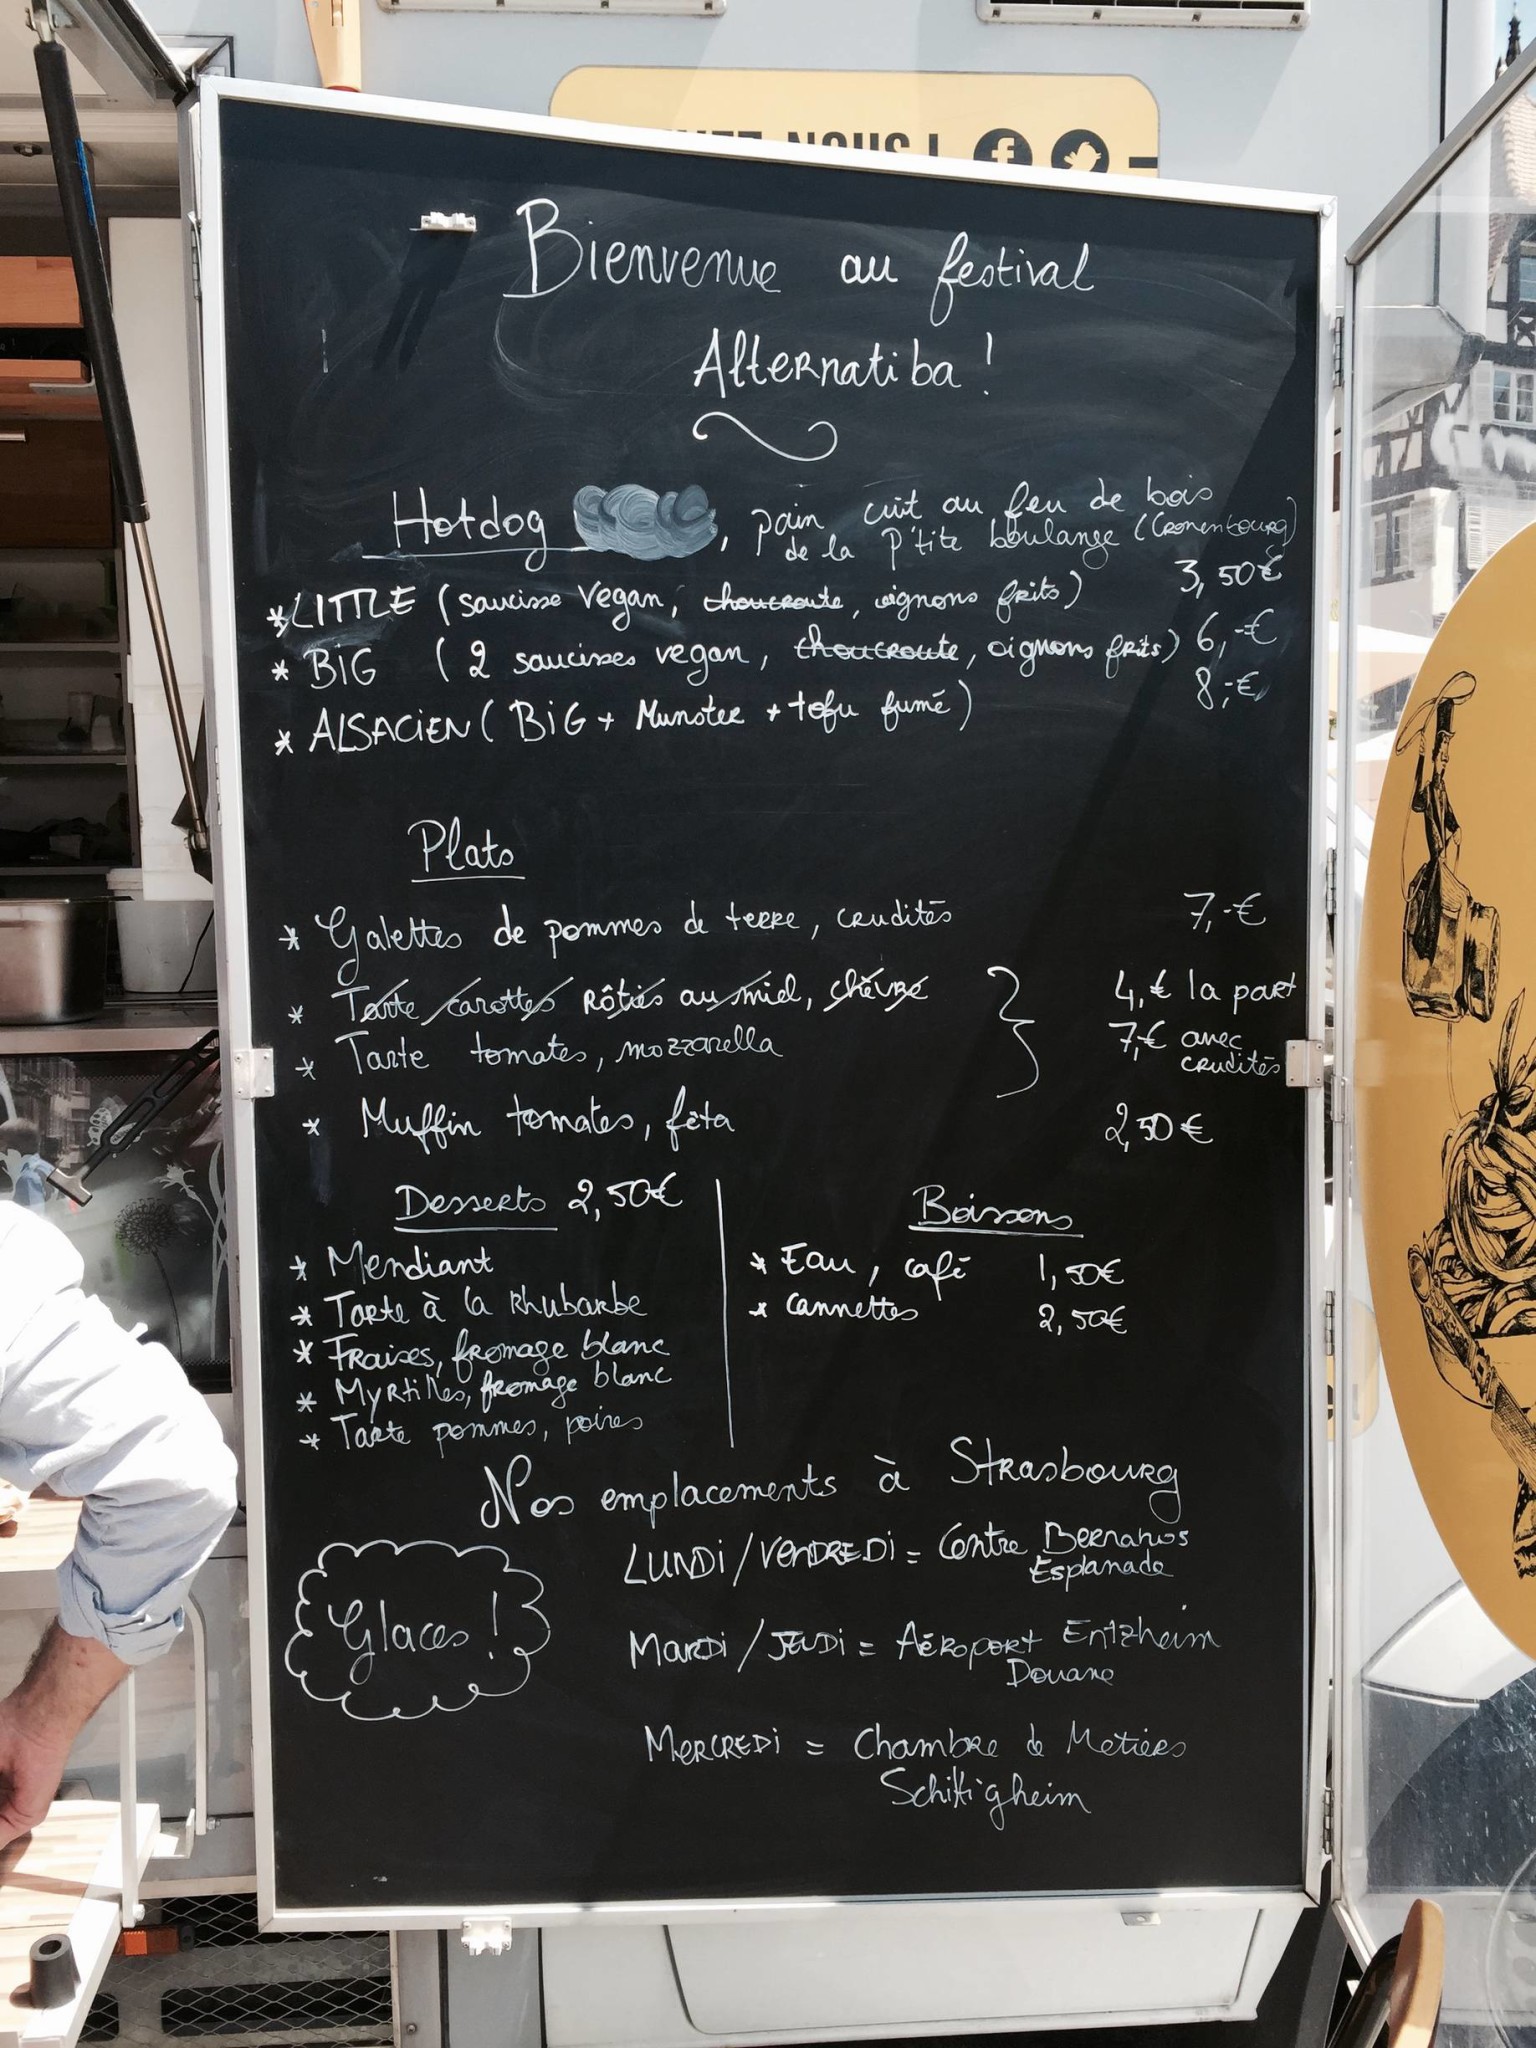 NOUS !
Bienvenue au festival
Alternatiba !
Hotdog , pain cuit au feu de bois
de la p'tite boulange (Cronenbourg)
* LITTLE (saucisse vegan, choucroute, oignons frits) 3,50€
* BIG (2 saucisses vegan, choucroute, oignons frits) 6,-€
* ALSACIEN (BIG + Munster + tofu fumé) 8,-€
Plats
* Galettes de pommes de terre, crudités 7,-€
* Tarte carottes rôties au miel, chèvre 4,€ la part
* Tarte tomates, mozzarella 7,€ avec
crudités
* Muffin tomates, fêta 2,50€
Desserts 2,50€
* Mendiant
* Tarte à la rhubarbe
* Fraises, fromage blanc
* Myrtilles, fromage blanc
* Tarte pommes, poires
Boissons
* Eau, café 1,50€
* Cannettes 2,50€
Nos emplacements à Strasbourg
LUNDI / VENDREDI = Centre Bernanos
Esplanade
MARDI / JEUDI = Aéroport Entzheim
Douane
MERCREDI = Chambre de Métiers
Schiltigheim
Glaces !